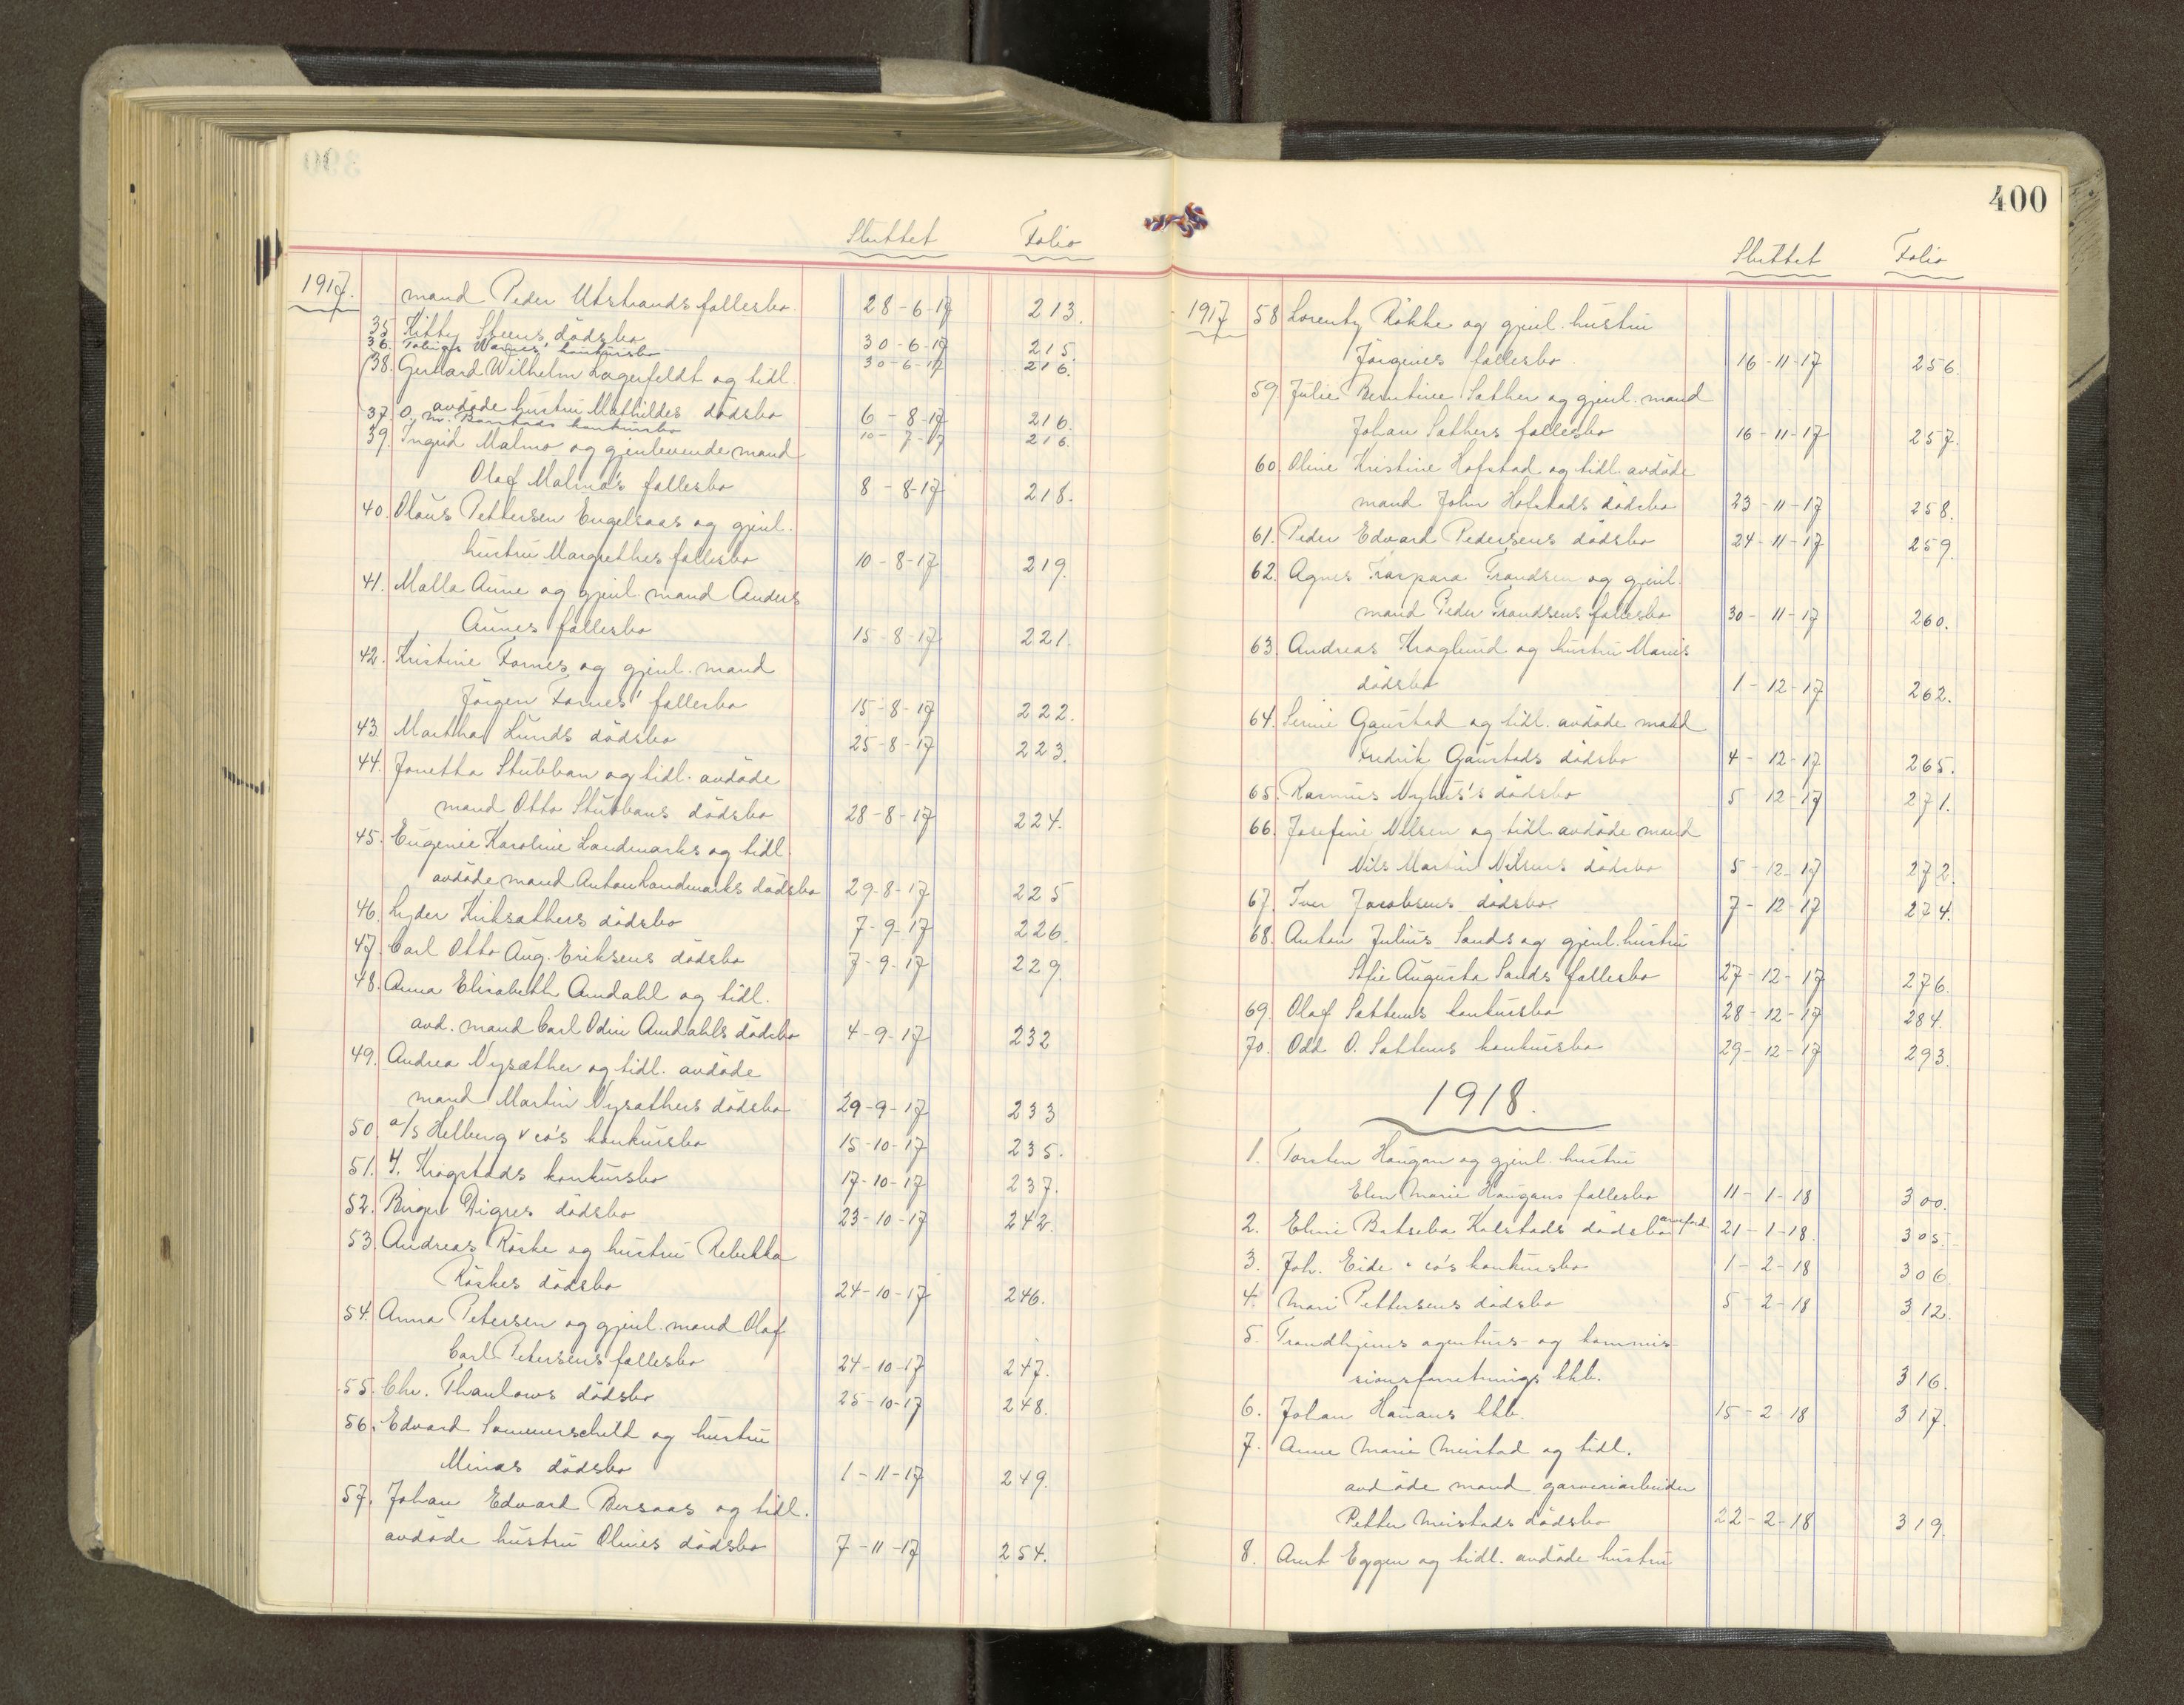 Sluttet Folio
1917. mand Peder Utstrands fællesbo 28-6-17 213.
35 Kitty Steens dödsbo 30-6-17 215.
36. Tobias Warnes' konkursbo 30-6-17 216.
38. Gerhard Wilhelm Lagerfeldt og tidl.
avdöde hustru Mathildes dödsbo 6-8-17 216.
37. O. M. Barstads konkursbo 10-7-17 216.
39. Ingrid Malmo og gjenlevende mand
Olaf Malmo's fællesbo 8-8-17 218.
40. Olaus Pettersen Engelsaas og gjenl.
hustru Margrethes fællesbo 10-8-17 219.
41. Malla Aune og gjenl. mand Anders
Aunes fællesbo 15-8-17 221.
42. Kristine Fornes og gjenl. mand
Jörgen Fornes' fællesbo 15-8-17 222.
43. Martha Lunds dödsbo 25-8-17 223.
44. Jonetta Stubban og tidl. avdöde
mand Otto Stubbans dödsbo 28-8-17 224.
45. Eugenie Karoline Landmarks og tidl.
avdöde mand Anton Landmarks dödsbo 29-8-17 225
46. Lyder Kirksæthers dödsbo 7-9-17 226.
47. Carl Otto Aug. Eriksens dödsbo 7-9-17 229.
48. Anna Elisabeth Amdahl og tidl.
avd. mand Carl Odin Amdahls dödsbo 4-9-17 232
49. Andrea Nysæther og tidl. avdöde
mand Martin Nysæthers dödsbo 29-9-17 233
50. a/s Helberg & co's konkursbo 15-10-17 235.
51. Y. Krogstads konkursbo 17-10-17 237.
52. Birger Digres dödsbo 23-10-17 242.
53. Andreas Röske og hustru Rebekka
Röskes dödsbo 24-10-17 246.
54. Anna Petersen og gjenl. mand Olaf
Carl Petersens fællesbo 24-10-17 247.
55. Chr. Thaulows dödsbo 25-10-17 248.
56. Edvard Sommerschild og hustru
Minas dödsbo 1-11-17 249.
57. Johan Edvard Bersaas og tidl.
avdöde hustru Olines dödsbo 7-11-17 254.
400
Sluttet Folio
1917 58 Lorentz Rökke og gjenl. hustru
Jörgines fællesbo 16-11-17 256.
59. Julie Berntine Sæther og gjenl. mand
Johan Sæthers fællesbo 16-11-17 257.
60. Oline Kristine Hofstad og tidl. avdöde
mand John Hofstads dödsbo 23-11-17 258.
61. Peder Edvard Pedersens dödsbo 24-11-17 259.
62. Agnes Fraspara Frandsen og gjenl.
mand Peder Frandsens fællesbo 30-11-17 260.
63. Andreas Kroglund og hustru Maries
dödsbo 1-12-17 262.
64. Serine Gaustad og tidl. avdöde mand
Fredrik Gaustads dödsbo 4-12-17 265.
65. Rasmus Nyhus's dödsbo 5-12-17 271.
66. Josefine Nilsen og tidl. avdöde mand
Nils Martin Nilsens dödsbo 5-12-17 272.
67. Iver Jacobsens dödsbo 7-12-17 274.
68. Anton Julius Sands og gjenl. hustru
Sofie Augusta Sands fællesbo 27-12-17 276.
69. Olaf Sættems konkursbo 28-12-17 284.
70. Odd O. Sættems konkursbo 29-12-17 293.
1918.
1. Torsten Haugan og gjenl. hustru
Elen Marie Haugans fællesbo 11-1-18 300.
2. Elmi Batseba Kalstads dödsbo 21-1-18. 305.
3. Joh. Eide & co's konkursbo 1-2-18 306
4. Mari Pettersens dödsbo 5-2-18 312.
5. Trondhjems agenturs- og kommis-
sionsforretnings kkb. 316.
6. Johan Hanans kkb. 15-2-18 317.
7. Anne Marie Meistad og tidl.
avdöde mand garveriarbeider
Petter Meistads dödsbo 22-2-18 319.
8. Arnt Eggen og tidl. avdöde hustru